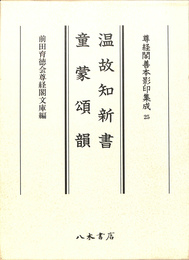 尊経閣善本影印集成 25
温故知新書
童蒙頌韻
前田育徳会尊経閣文庫編
八木書店